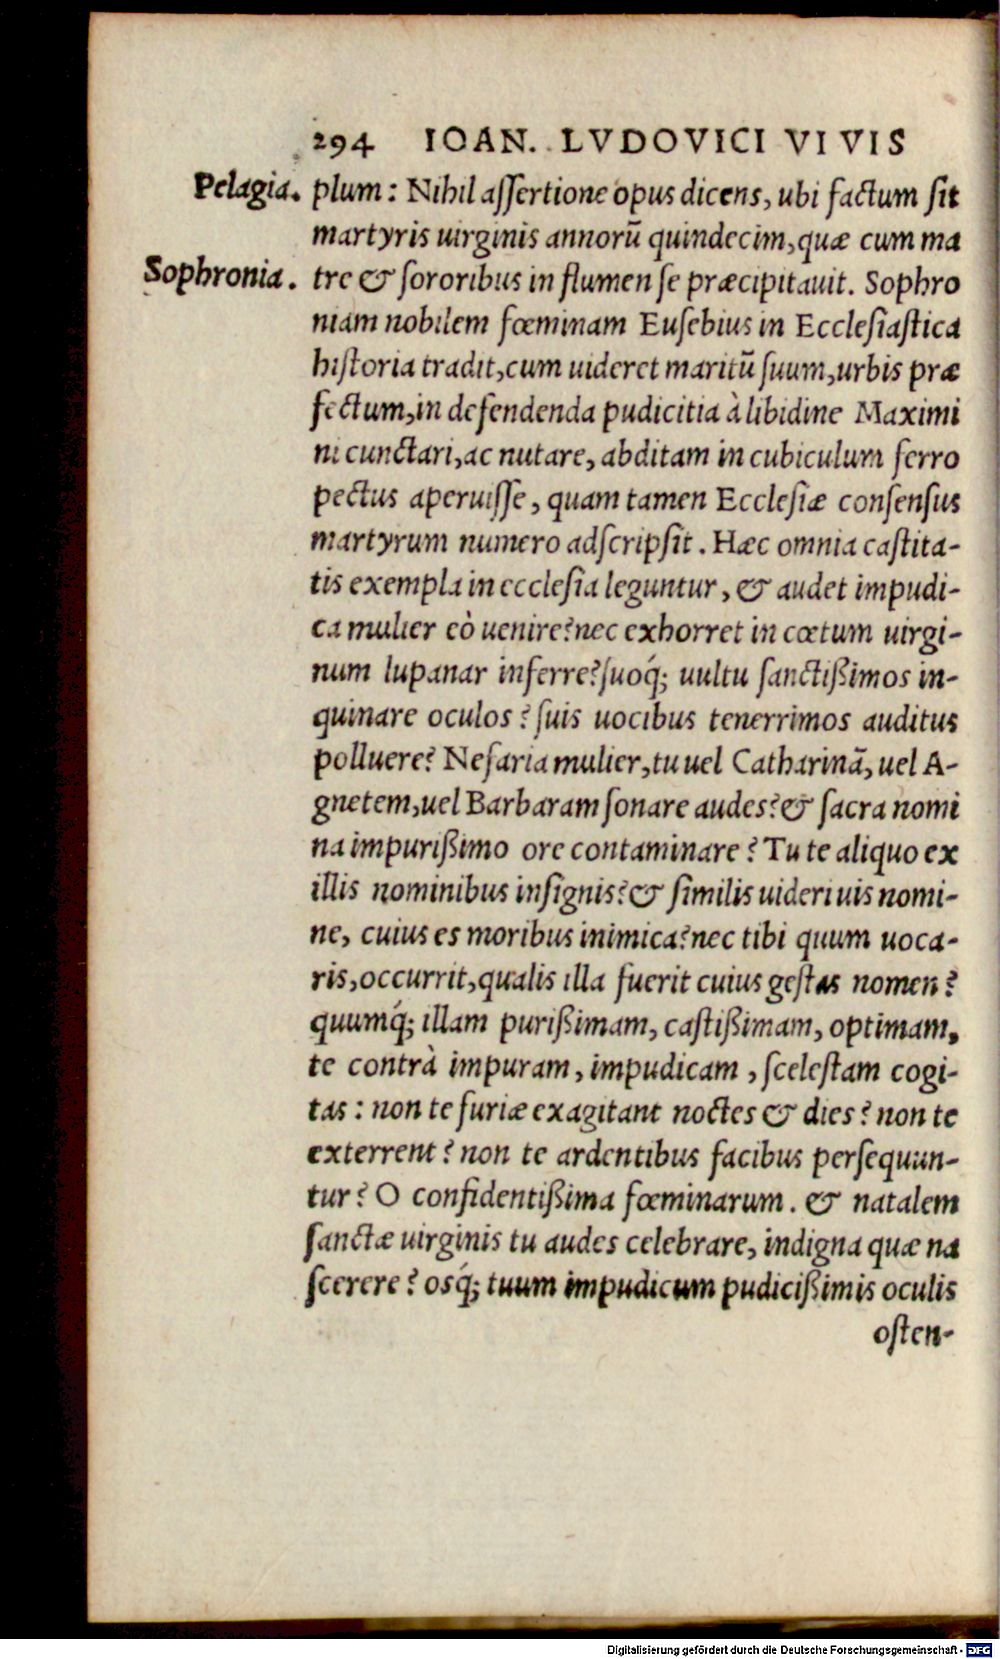 294 IOAN. LVDOVICI VIVIS
Pelagia. plum: Nihil assertione opus dicens, ubi factum sit
martyris uirginis annorũ quindecim, quæ cum ma
Sophronia. tre & sororibus in flumen se præcipitauit. Sophro
niam nobilem fœminam Eusebius in Ecclesiastica
historia tradit, cum uideret maritũ suum, urbis præ
fectum, in defendenda pudicitia à libidine Maximi
ni cunctari, ac nutare, abditam in cubiculum ferro
pectus aperuisse, quam tamen Ecclesiæ consensus
martyrum numero adscripsit. Hæc omnia castita-
tis exempla in ecclesia leguntur, & audet impudi-
ca mulier eò uenire? nec exhorret in cœtum uirgi-
num lupanar inferre? suoq́; uultu sanctißimos in-
quinare oculos? suis uocibus tenerrimos auditus
polluere? Nefaria mulier, tu uel Catharinã, uel A-
gnetem, uel Barbaram sonare audes? & sacra nomi
na impurißimo ore contaminare? Tu te aliquo ex
illis nominibus insignis? & similis uideri uis nomi-
ne, cuius es moribus inimica? nec tibi quum uoca-
ris, occurrit, qualis illa fuerit cuius gestas nomen?
quumq́; illam purißimam, castißimam, optimam,
te contrà impuram, impudicam, scelestam cogi-
tas: non te furiæ exagitant noctes & dies? non te
exterrent? non te ardentibus facibus persequun-
tur? O confidentißima fœminarum. & natalem
sanctæ uirginis tu audes celebrare, indigna quæ na
scerere? osq́; tuum impudicum pudicißimis oculis
osten-
Digitalisierung gefördert durch die Deutsche Forschungsgemeinschaft - DFG